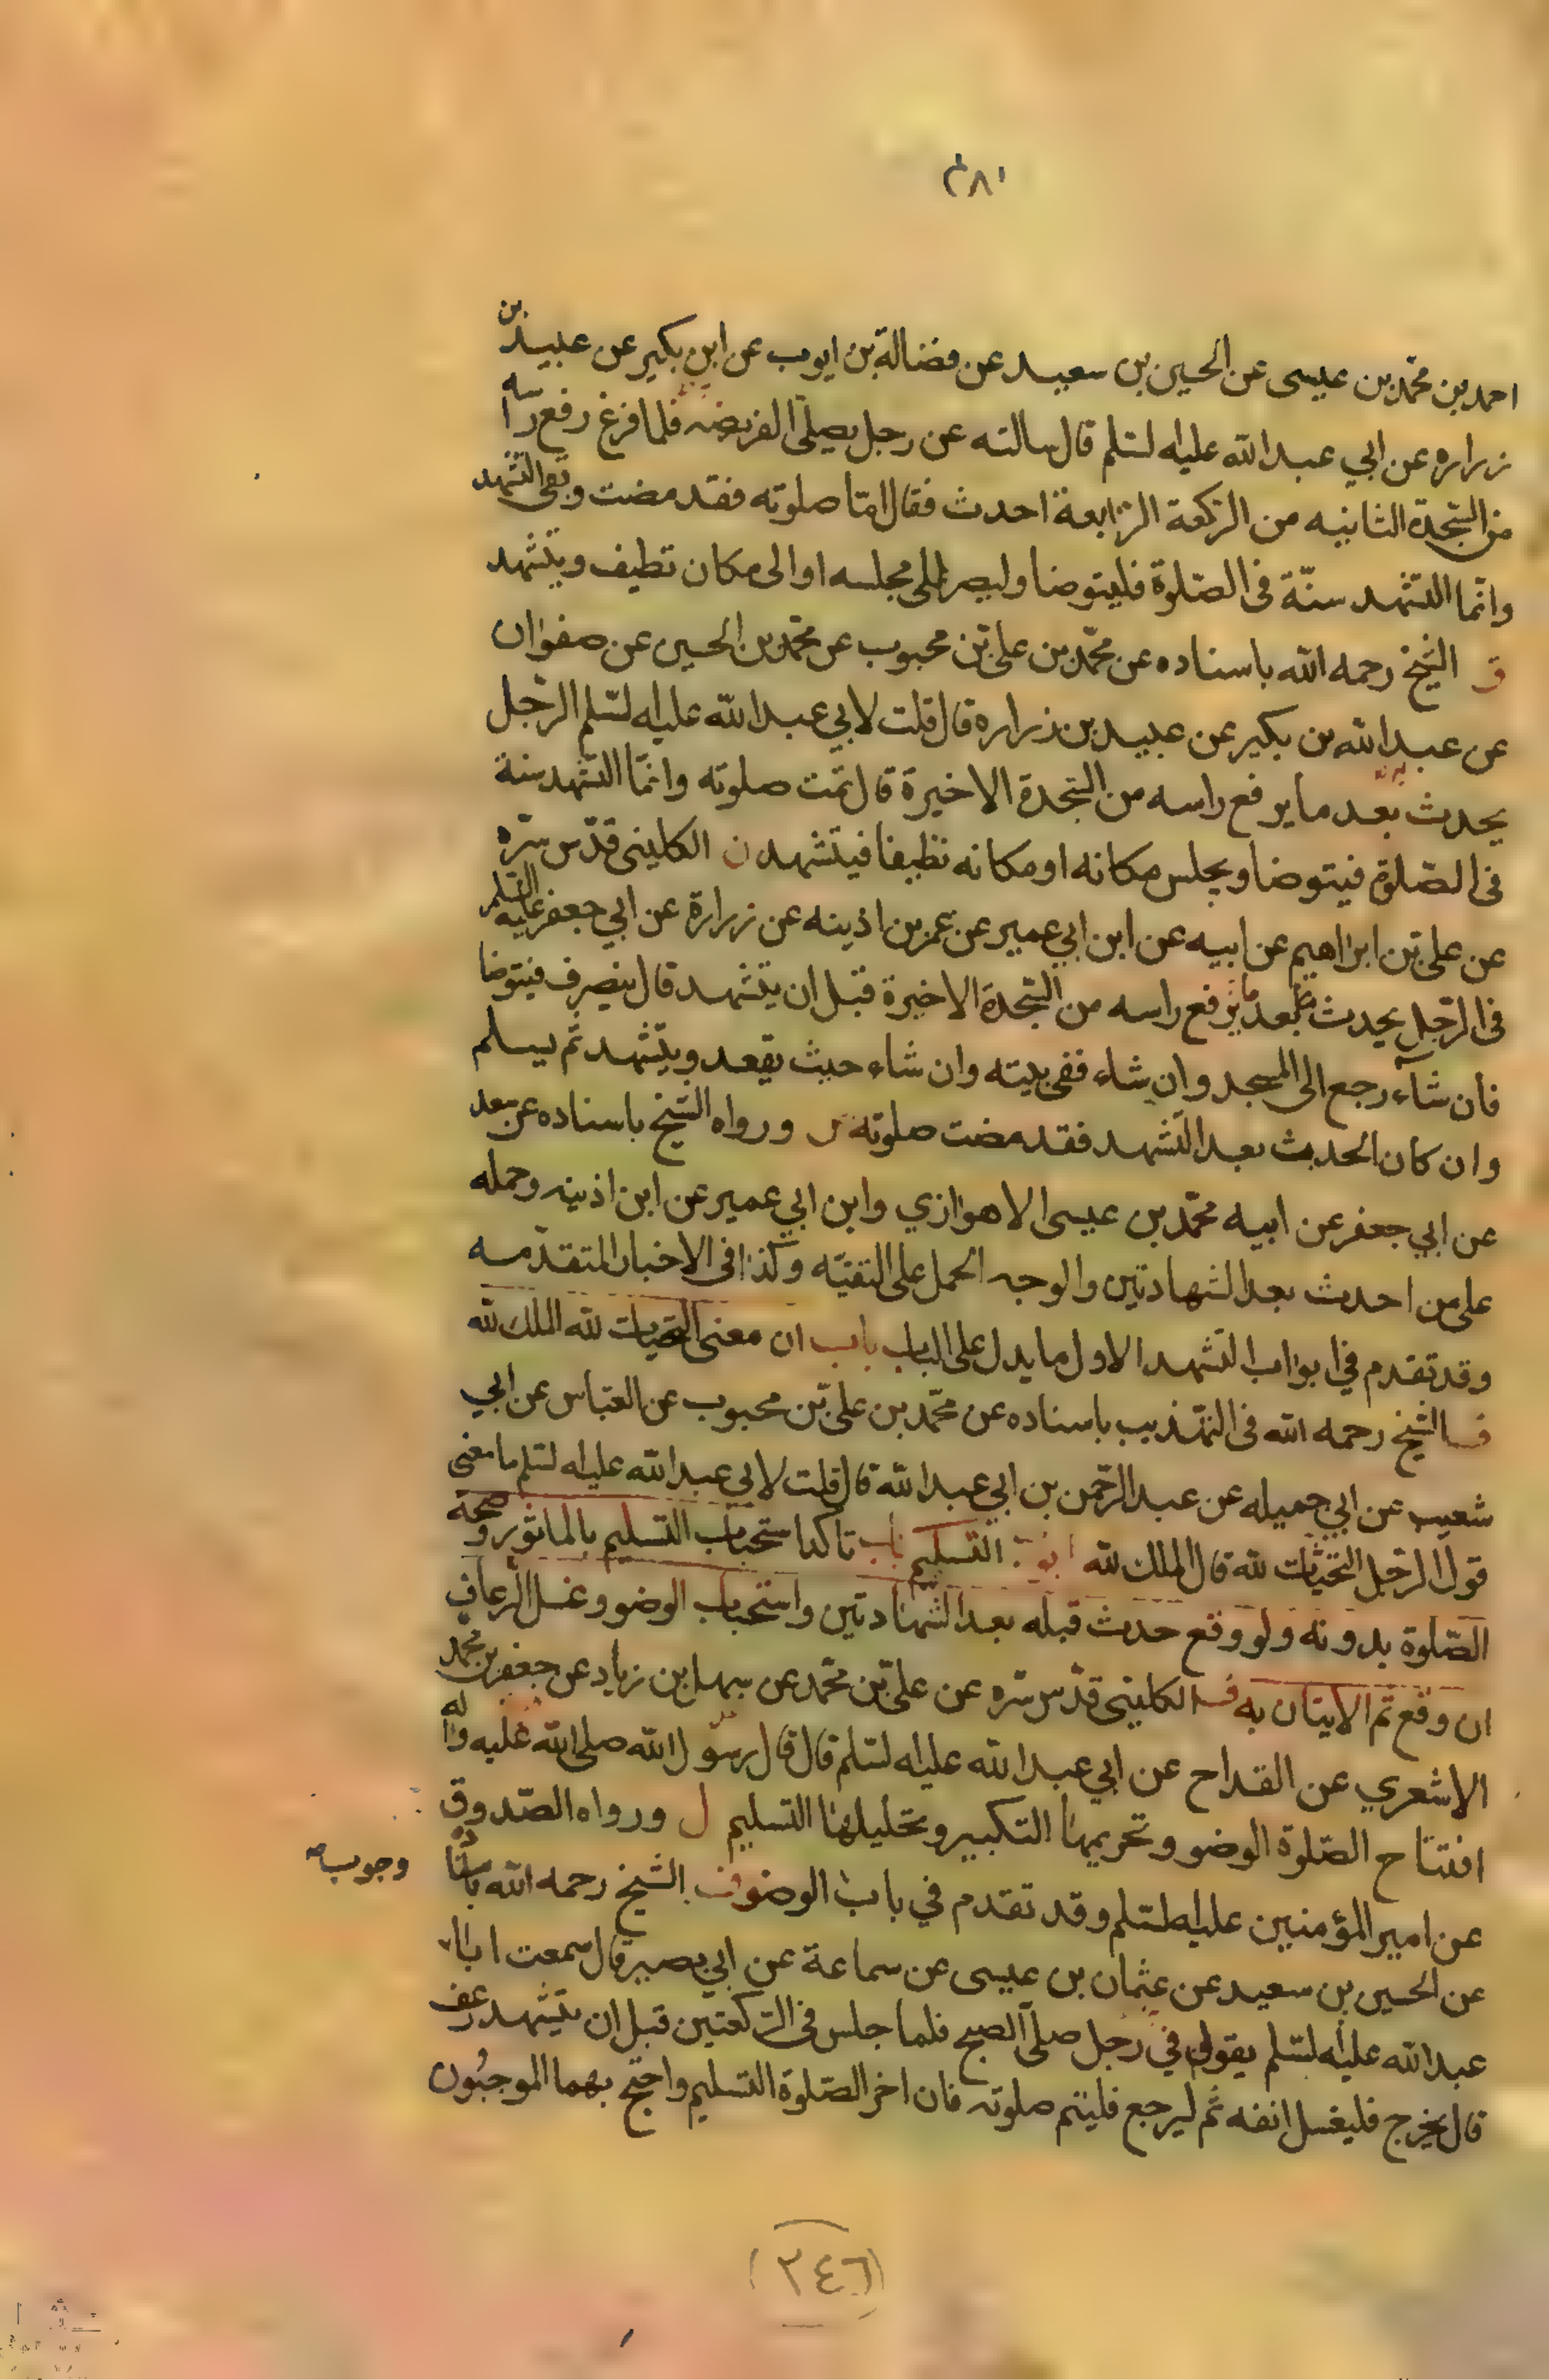 ٢٨١
احمد بن محمّد بن عيسى عن الحسين بن سعيد عن فضالة بن ايوب عن ابن بكير عن عبيد بن
زراره عن ابي عبد الله عليه السّلم قال سالته عن رجل يصلّى الفريضه فلما فرغ رفع راسه
من السّجدة الثانيه من الركعة الرابعة احدث فقال امّا صلوته فقد مضت وبقى التشهد
وانّما التشهد سنّة فى الصّلوة فليتوضا وليصر الى مجلسه او الى مكان نظيف ويتشهد
الشيخ رحمه الله باسناده عن محمّد بن علىّ بن محبوب عن محمّد بن الحسين عن صفوان
عن عبد الله بن بكير عن عبيد بن زراره قال قلت لابي عبد الله عليه السّلم الرّجل
يحدث بعد ما يرفع راسه من السّجدة الاخيرة قال تمّت صلوته وانّما التشهد سنة
فى الصّلوة فيتوضا ويجلس مكانه او مكانه نظيفا فيتشهد ن الكلينى قدّس سّره
عن علىّ بن ابراهيم عن ابيه عن ابن ابي عمير عن عمر بن اذينه عن زرارة عن ابي جعفر عليه السلم
فى الرّجل يحدث بعد ما يرفع راسه من السّجدة الاخيرة قبل ان يتشهد قال ينصرف فيتوضا
فان شآء رجع الى المسجد وان شاء ففى بيته وان شاء حيث يقعد ويتشهد ثم يسلم
وان كان الحدث بعد التشهد فقد مضت صلوته ورواه الشيخ باسناده عن سعد
عن ابي جعفر عن ابيه محمّد بن عيسى الاهوازي وابن ابي عمير عن ابن اذينه وحمله
على من احدث بعد الشهادتين والوجه الحمل على التقيّه وكذا فى الاخبار المتقدّمه
وقد تقدم في ابواب التشهد الاول ما يدل على الباب باب ان معنى التحيات لله الملك لله
الشيخ رحمه الله فى التهذيب باسناده عن محمّد بن علىّ بن محبوب عن العبّاس عن ابي
شعيب عن ابي جميله عن عبد الرّحمن بن ابي عبد الله قال قلت لابي عبد الله عليه السّلم ما معنى
قول الرّجل التحيّات لله قال الملك لله التسليم باب تاكد استحباب التسليم بالماثور وصحة
الصّلوة بدونه ولو وقع حدث قبله بعد الشّهادتين واستحباب الوضو وغسل الرعاف
ان وقع ثم الاتيان به الكلينى قدّس سّره عن علىّ بن محمّد عن سهل بن زياد عن جعفر بن محمد
الاشعري عن القداح عن ابي عبد الله عليه السّلم قال قال رسول الله صلى الله عليه واله
افتتاح الصّلوة الوضو وتحريمها التكبير وتحليلها التسليم ل ورواه الصّدوق
عن امير المؤمنين عليه السّلم وقد تقدم في باب الوضو الشيخ رحمه الله باسناده
وجوب
عن الحسين بن سعيد عن عثمان بن عيسى عن سماعة عن ابي بصير قال سمعت ابا
عبد الله عليه السّلم يقول في رجل صلّى الصبح فلما جلس فى الركعتين قبل ان يتشهد رعف
قال يخرج فليغسل انفه ثم ليرجع فليتم صلوته فان اخر الصّلوة التسليم واحتج بهما الموجبون
(٢٤٦)